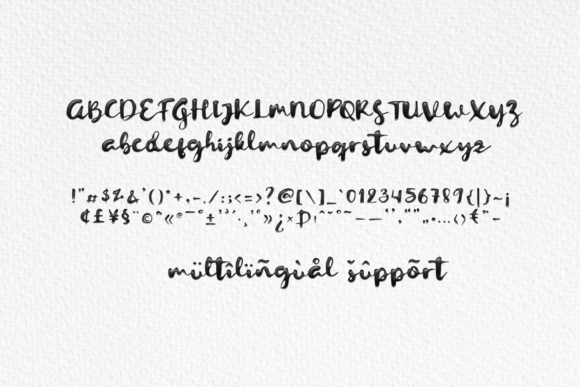 ABCDEFGHIJKLmNOPQRSTUVwXyz
abcdefghijklmnopqrstuvwxyz
!"#$%&'()*+,-./:;<=>?@[\]_`0123456789{|}~¡
¢£¥§¨©ˆ«®¯°±²³´¸¹º»¿×Þ
mültîlïñgùål šûppõrt